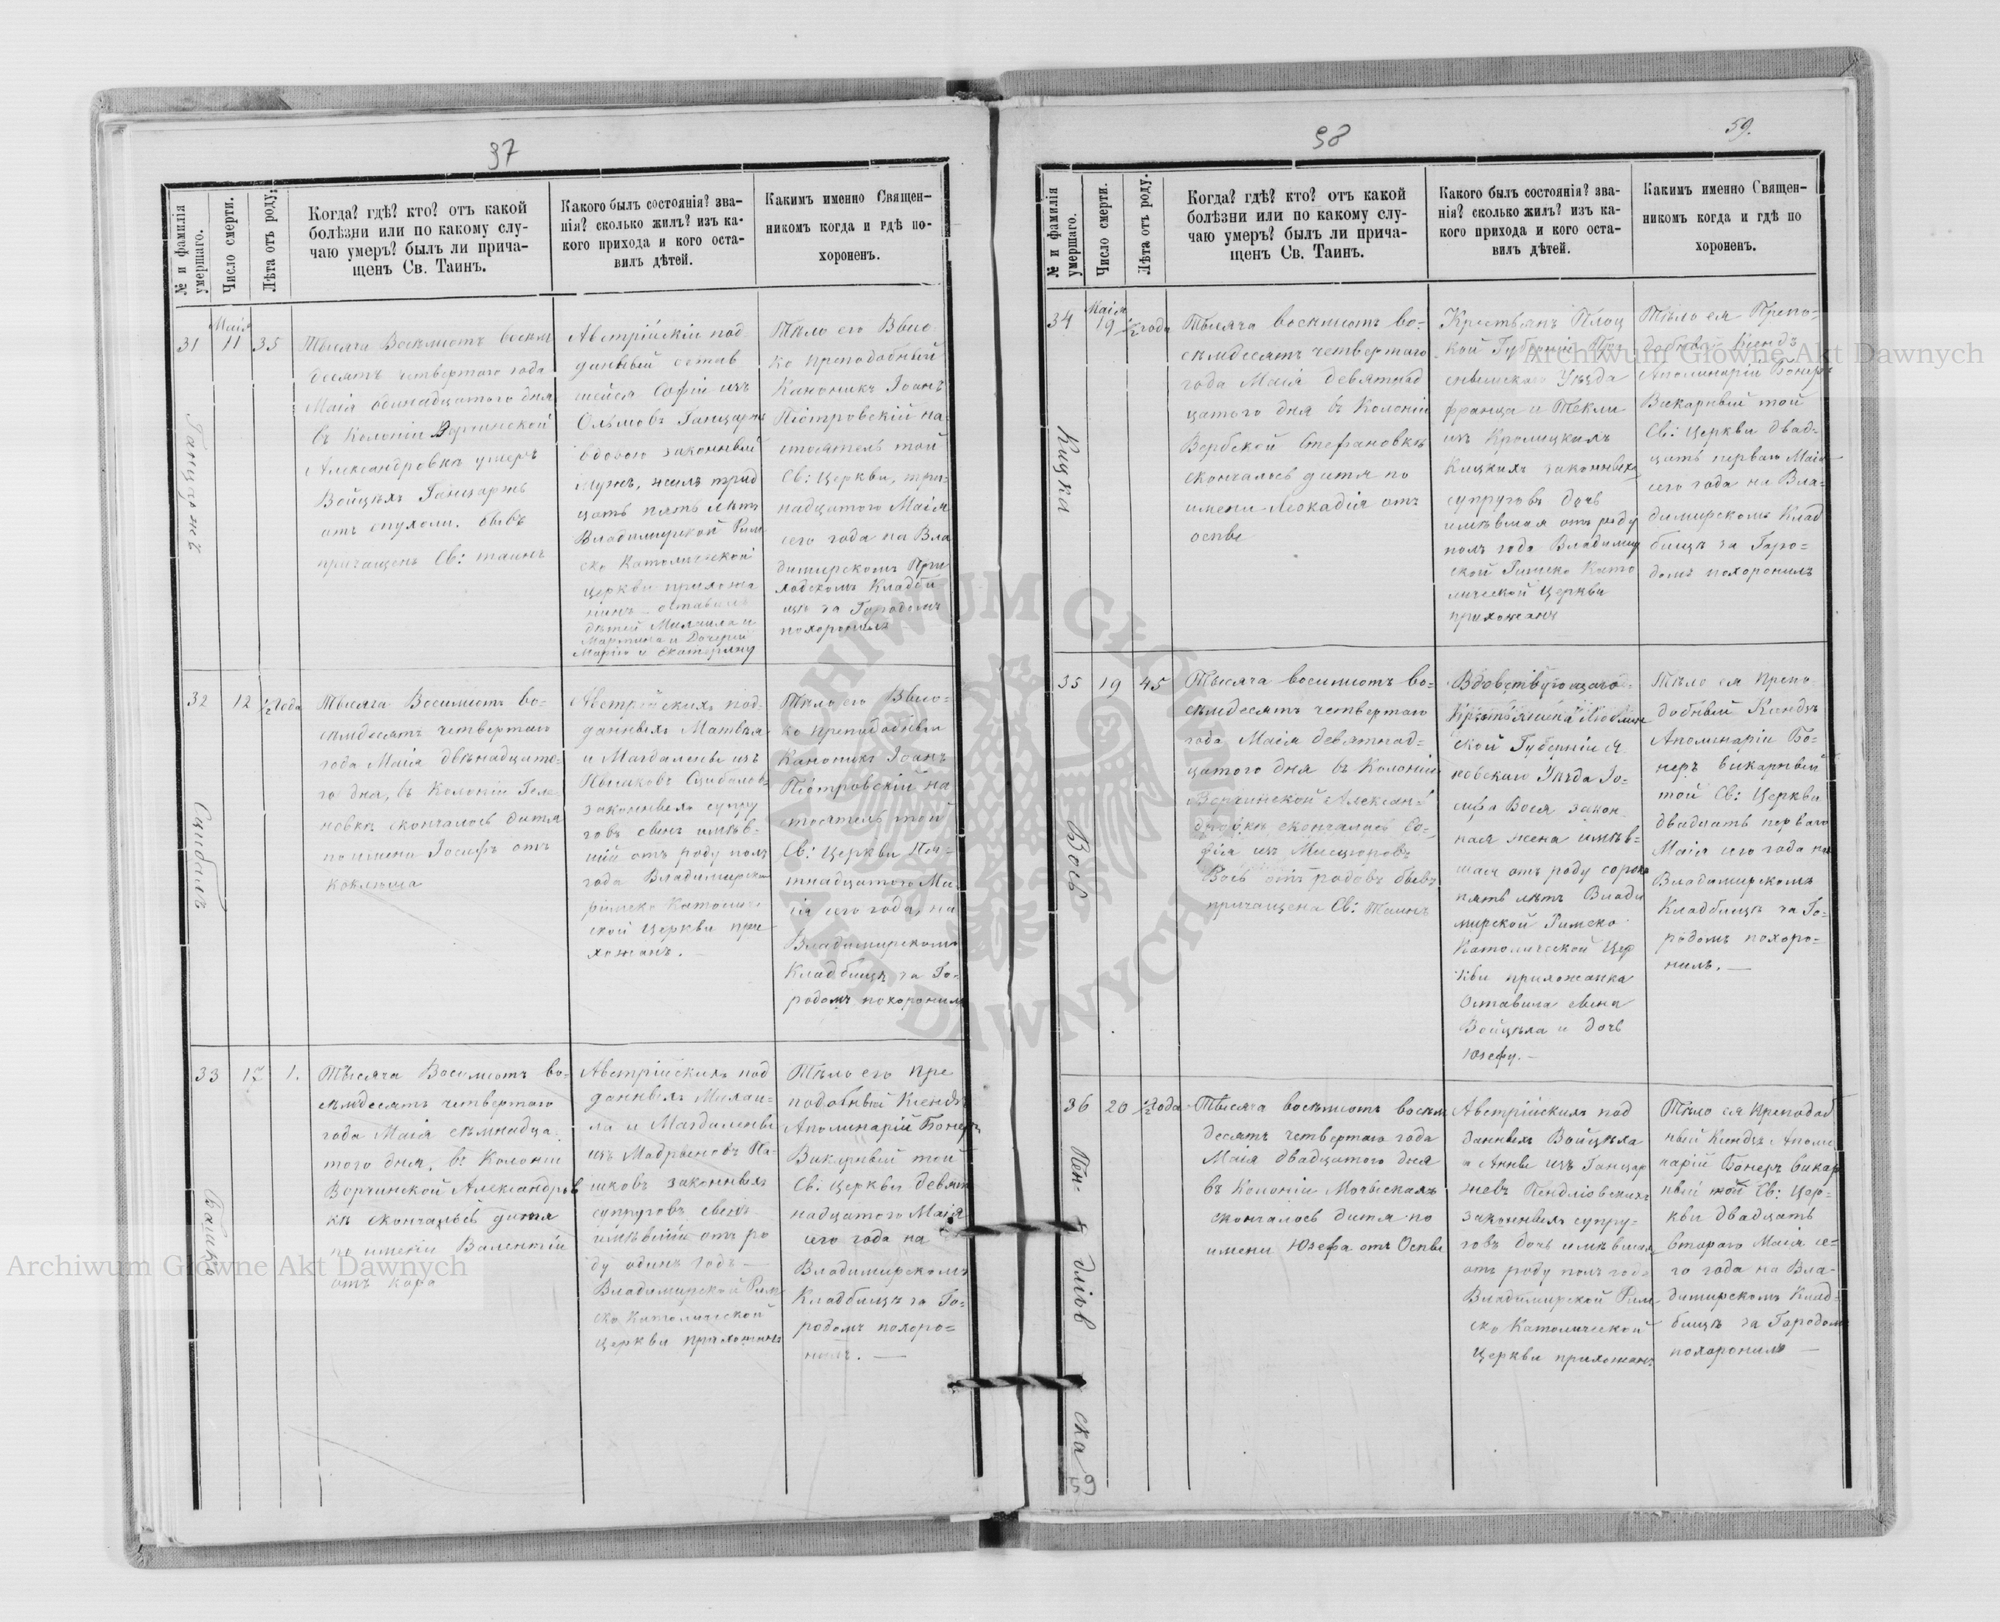 37
№ и фамилія умершаго.
Число смерти.
Лѣта отъ роду.
Когда? гдѣ? кто? отъ какой
болѣзни или по какому слу-
чаю умеръ? былъ ли прича-
щенъ Св. Таинъ.
Какого былъ состоянія? зва-
нія? сколько жилъ? изъ ка-
кого прихода и кого оста-
вилъ дѣтей.
Какимъ именно Священ-
никомъ когда и гдѣ по-
хороненъ.
31
Маія
11
35
Тысяча Восемьсотъ восемь
десятъ четвертаго года
Маія одинадцатого дня
въ Колоніи Ворчинской
Александровкѣ умеръ
Войцѣхъ Ганцаржъ
отъ опухоли. бывъ
причащенъ Св: таинъ
Австрійскій под
данный оставъ
шейся Софіи изъ
вдовою законный
мужъ, жилъ трид
цать пять лѣтъ
Владимирской Рим
ско Католической
церкви прихожа
нинъ оставилъ
дѣтей Михаила и
Мартина и Дочерей
Марію и Екатерину
Тѣло его Высо
ко преподобный
Каноникъ Іоанъ
Піотровскій на
стоятель той
Св: Церкви, три-
надцатого Маія
сего года на Вла
димирскомъ При
ходскомъ Кладби
щѣ за Городомъ
похоронилъ
32
12
½ года
Тысяча Восемьсотъ во-
семдесятъ четвертаго
года Маія двѣнадцато-
го дня, въ Колоніи Геле
новкѣ скончалось дитя
по имени Іосифъ отъ
коклюша
Австрійскихъ под-
данныхъ Матвѣя
и Магдалены изъ
законныхъ супру
говъ сынъ имѣв-
шій отъ роду полъ
года Владимирско
римско Католиче
ской Церкви при
хожанъ.
Тѣло его Высо-
ко преподобный
Каноникъ Іоанъ
Піотровскій на
стоятель той
Св: Церкви Пят-
тнадцатого Ма-
ія сего года, на
Владимирскомъ
Кладбищѣ за Го-
родомъ похоронилъ
33
17
1.
Тысяча Восемьсотъ во-
семдесятъ четвертаго
года Маія семнадца
того дня, въ Колоніи
Ворчинской Александров
кѣ скончалось дитя
по имени Валентій
отъ кора
Австрійскихъ под
данныхъ Михаи-
ла и Магдалены
законныхъ
супруговъ сынъ
имѣвшій отъ ро
ду одинъ годъ
Владимирской Рим
ско Католической
церкви прихожанъ
Тѣло его Пре
подобный Ксендзъ
Аполинарій Бонеръ
Викарный той
Св: Церкви девят
надцатого Маія
сего года на
Владимирскомъ
Кладбищѣ за Го-
родомъ похоро-
нилъ.
38
59.
№ и фамилія умершаго.
Число смерти.
Лѣта отъ роду.
Когда? гдѣ? кто? отъ какой
болѣзни или по какому слу-
чаю умеръ? былъ ли прича-
щенъ Св. Таинъ.
Какого былъ состоянія? зва-
нія? сколько жилъ? изъ ка-
кого прихода и кого оста-
вилъ дѣтей.
Какимъ именно Священ-
никомъ когда и гдѣ по
хороненъ.
34
Кицка
Маія
19
½ года
Тысяча восемьсотъ во-
семдесятъ четвертаго
года Маія девятнад
цатого дня въ Колоніи
Вербской Стефановкѣ
скончалось дитя по
имени Леокадія отъ
оспы
Крестьянъ Плоц
кой Губерніи
Уѣзда
Франца и Текли
изъ
Кицкихъ законныхъ
супруговъ дочь
имѣвшая отъ роду
полъ года Владимир
ской Римско Като
лической Церкви
прихожанъ
Тѣло ея Препо-
добный Ксендзъ
Аполинарій Бонеръ
Викарный той
Св: Церкви двад-
цать перваго Маія
сего года на Вла-
димирскомъ Клад
бищѣ за Горо-
домъ похоронилъ
35
Вось
19
45
Тысяча восемьсотъ во-
семдесятъ четвертаго
года Маія девятнад-
цатого дня въ Колоніи
Ворчинской Алексан-
дровкѣ скончалась Со-
фія изъ
Вось отъ родовъ бывъ
причащена Св: Таинъ
ской Губерніи Я
новскаго Уѣзда Іо-
сифа Вося закон
ная жена имѣв-
шая отъ роду сорокъ
пять лѣтъ Влади
мирской Римско
Католической Цер
кви прихожанка
Оставила сына
Войцѣха и дочь
Юзефу.
Тѣло ея Препо
добный Ксендзъ
Аполинарій Бо-
неръ викарный
той Св: Церкви
двадцать перваго
Маія сего года на
Владимирскомъ
Кладбищѣ за Го-
родомъ похоро-
нилъ.
36
20
½ года
Тысяча восемьсотъ восемь
десятъ четвертаго года
Маія двадцатого дня
въ Колоніи
скончалось дитя по
имени Юзефа отъ Оспы
Австрійскихъ под
данныхъ Войцѣха
и Анны изъ Ганцар
жевъ
законныхъ супру-
говъ дочь имѣвшая
отъ роду полъ года
Владимирской Рим
ско Католической
Церкви прихожанъ
Тѣло ея Преподоб
ный Ксендзъ Аполи
нарій Бонеръ викар
ный той Св: Цер-
кви двадцать
втораго Маія се-
го года на Вла-
димирскомъ Клад-
бищѣ за Городомъ
похоронилъ
59
Archiwum Główne Akt Dawnych
Archiwum Główne Akt Dawnych
ARCHIWUM GŁÓWNE AKT DAWNYCH